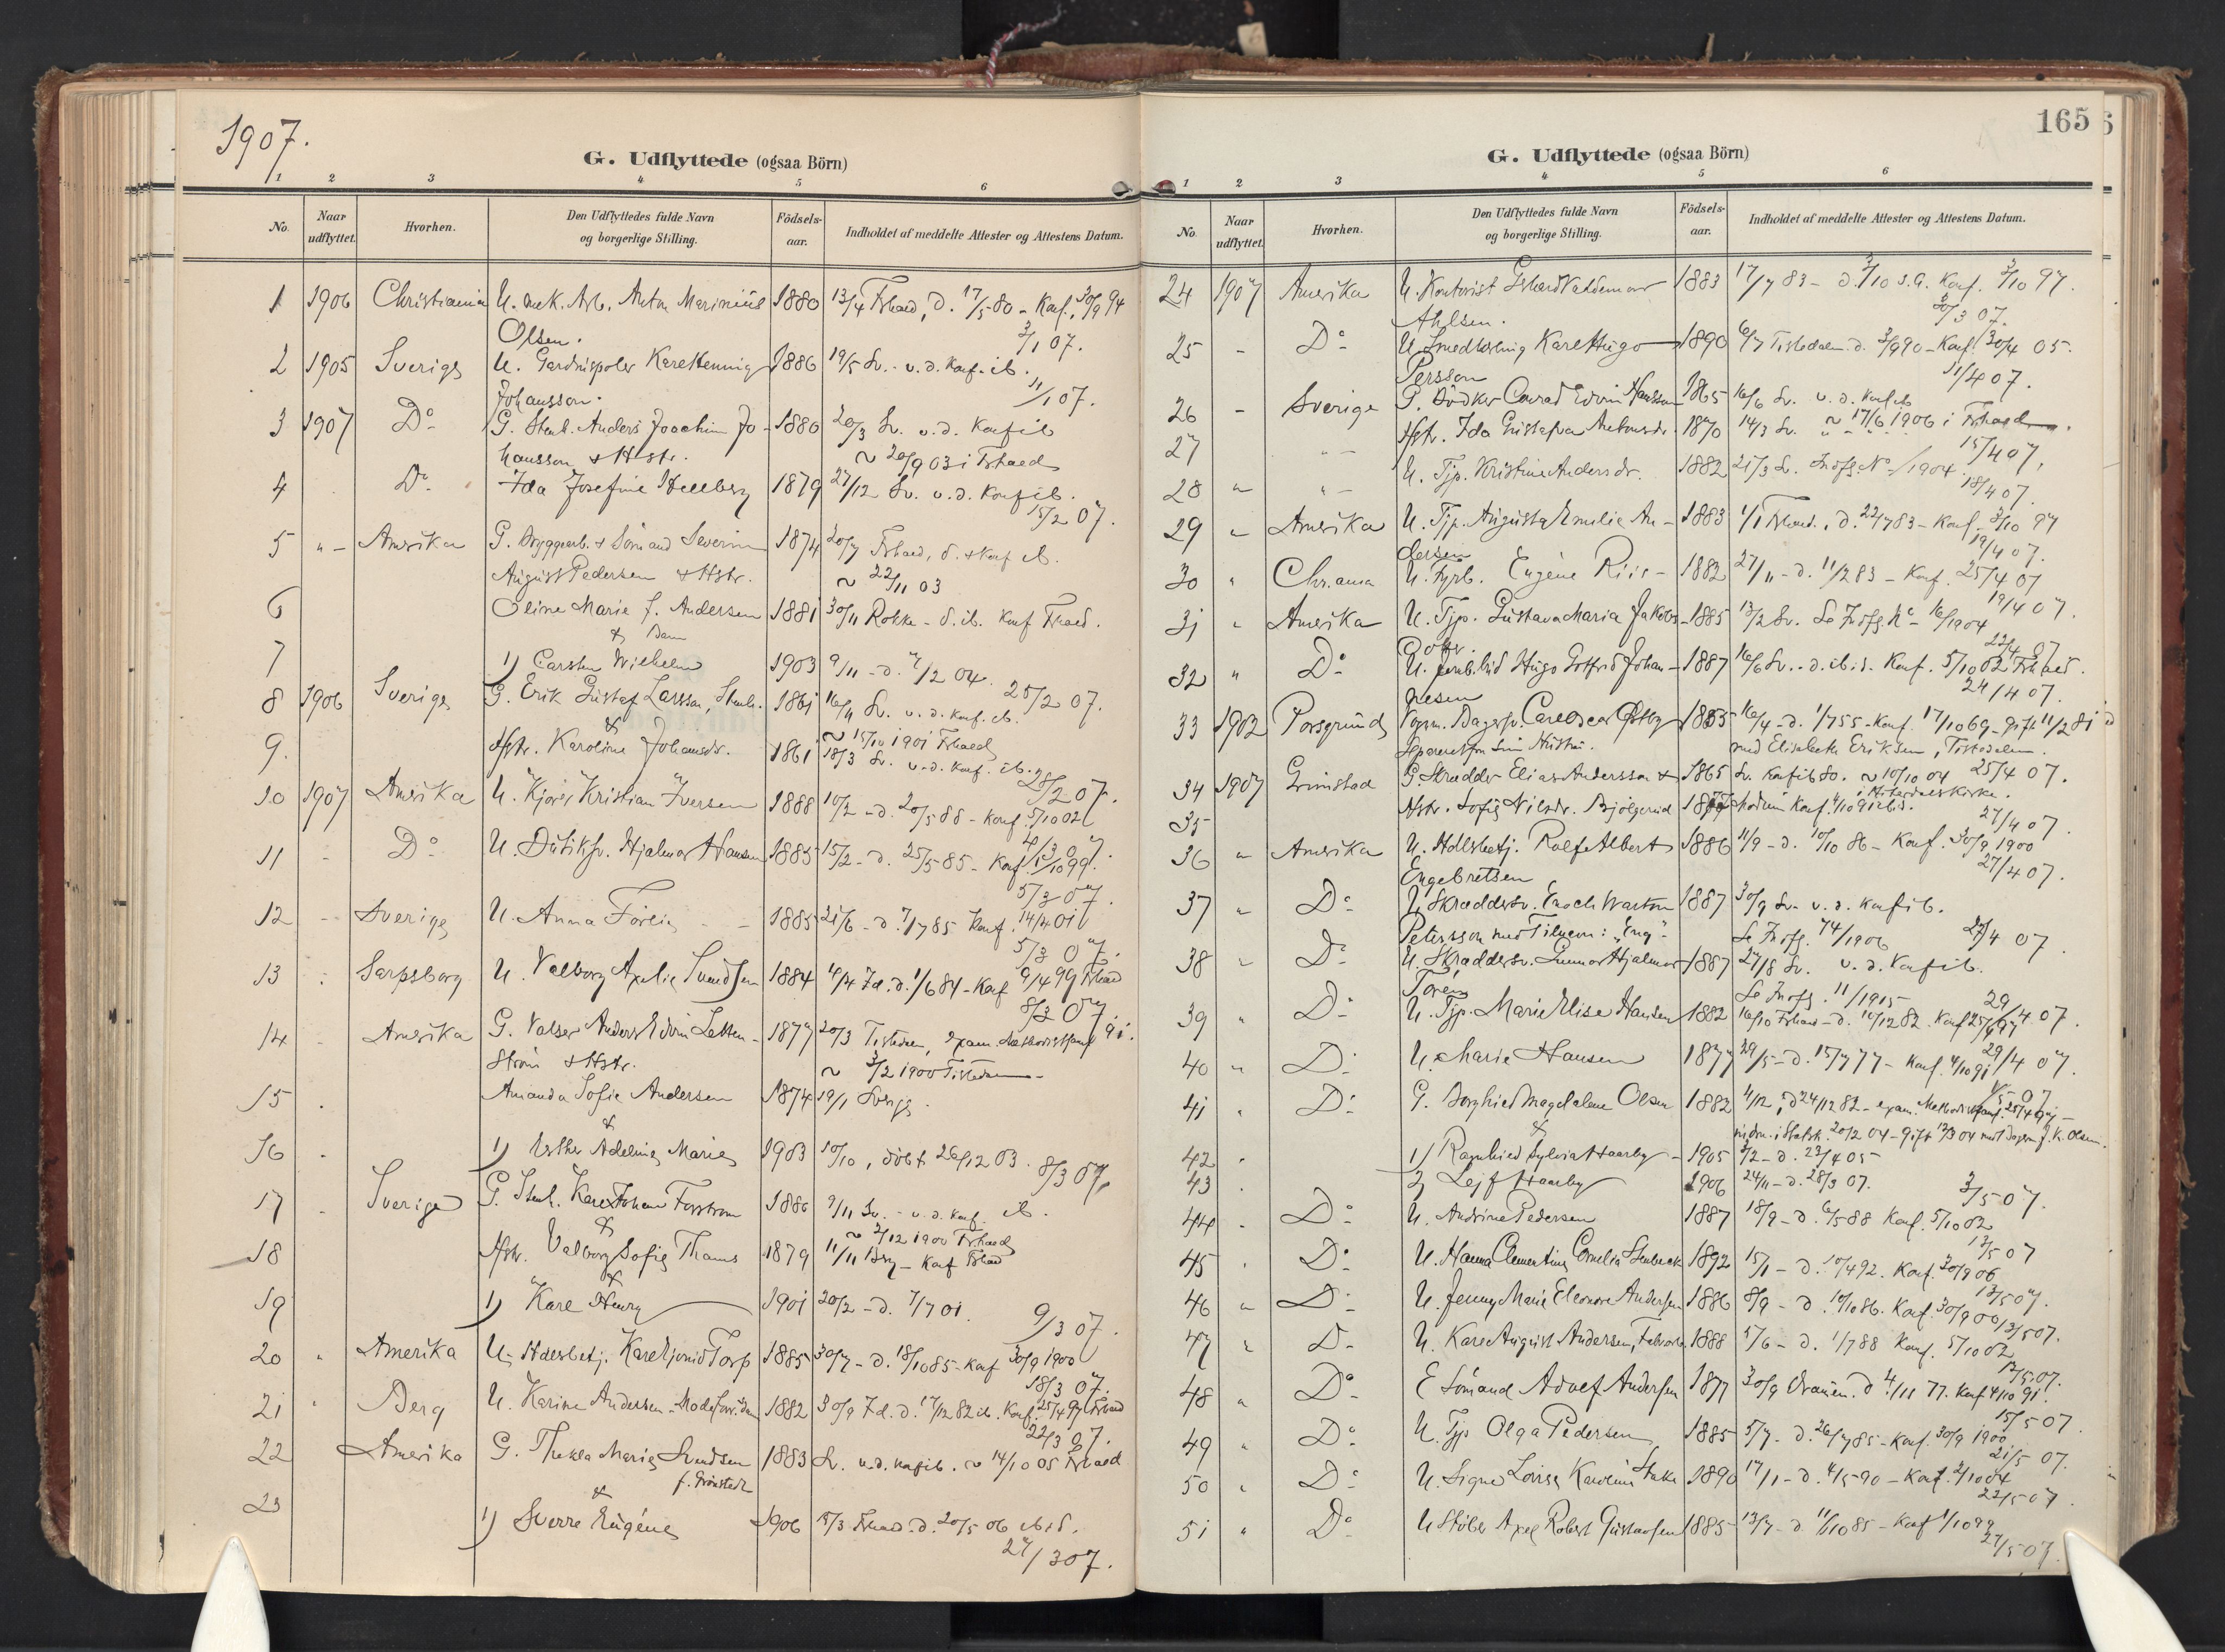 1907.
G. Udflyttede (ogsaa Börn)
1 2 3 4 5 6
No. Naar udflyttet. Hvorhen. Den Udflyttedes fulde Navn og borgerlige Stilling. Födsels-aar. Indholdet af meddelte Attester og Attestens Datum.
1 1906 Christiania U. mek. Arb. Anton Marinius 1880 13/4 Frhald, d. 17/5 80 - Konf. 30/9 94
Olsen. 3/1 07.
2 1905 Sverige U. Karl Henning 1886 19/5 Sv. - u. d. Konf. ib.
Johansson. 11/1 07.
3 1907 Do G. Stenh. Anders Joachim Jo- 1880 20/3 Sv. u. d. Konf ib
hansson & Hstr. ~ 20/9 03 i Frhald
4 Do Ida Josefine Hellberg 1879 27/12 Sv. u. d. Konf ib.
15/2 07.
5 " - Amerika G. Bryggearb. & Sömand Severin 1874 20/7 Frhald, d. & Konf ib.
August Pedersen & Hstr. ~ 22/11 03
6 Oline Marie f. Andersen 1881 30/11 Rokke - d. ib. Konf Frhald.
& Barn
7 1) Carsten Wilhelm 1903 9/11 - d. 7/2 04.
25/2 07.
8 1906 Sverige G. Erik Gustaf Larsson, Stenh. 1861 16/11 Sv. u. d. Konf. ib.
& ~ 15/10 1901 Frhald
9. Hstr. Karoline Johansdr. 1861 18/3 Sv. u. d. Konf. ib.
28/2 07.
10 1907 Amerika U. Kjörer Kristian Iversen 1888 10/2 - d. 20/5 88 - Konf. 5/10 02
4/3 07.
11 - Do U. Butikkf. Hjalmar Hansen 1885 15/2 - d. 25/5 85 - Konf. 1/10 99.
5/3 07.
12 - Sverige U. Anna Förlin - - 1885 21/6 - d. 7/7 85 Konf. 14/4 01
5/3 07.
13 Sarpsborg U. Valborg Axelie Svendsen 1884 4/4 Id. d. 1/6 84 - Konf 9/4 99 Frhald
8/3 07.
14 - Amerika G. Valser Anders Edvin Letten- 1877 20/3 Tistedalen, exam. Methodistsamf 91.
ström & Hstr. ~ 3/2 1900 Tistedalen -
15 . Amanda Sofie Andersen 1874 19/1 Sverige.
&
16 . 1) Esther Adeline Marie 1903 10/10, döbt 26/12 03.
8/3 07.
17 . Sverige G. Stenh. Karl Johan Forsstrom 1880 9/11 Sv. - u. d. Konf. ib.
& ~ 2/12 1900 Frhald
18 Hstr. Valborg Sofie Thams 1879 11/11 Berg - Konf Frhald
&
19 1) Karl Henry 1901 20/2 - d. 7/7 01.
9/3 07.
20 " Amerika U. Hdlsbetj. Karl Torp 1885 30/7 - d. 18/10 85 - Konf 30/9 1900
18/3 07.
21 " Berg U. Karine Andersen. 1882 30/9 Id. d. 17/12 82 ib. Konf. 25/4 97 Frhald
22/3 07.
22 Amerika G. Thekla Marie Svendsen 1883 Sv. u. d. Konf ib. ~ 14/10 05 Frhald
f. Grönstedt
&
23 1) Sverre Eugéne 1906 15/3 Frhald. d. 20/5 06 ibid.
27/3 07.
165
G. Udflyttede (ogsaa Börn)
1 2 3 4 5 6
No. Naar udflyttet. Hvorhen. Den Udflyttedes fulde Navn og borgerlige Stilling. Födsels-aar. Indholdet af meddelte Attester og Attestens Datum.
24 1907 Amerika U. Kontorist Valdemar 1883 17/7 83 - d. 7/10 s. A. Konf. 3/10 97.
Ahlsen. 30/3 07.
25 - Do U. Smedlærling Karl Hugo 1890 6/7 Tistedalen d. 3/9 90 - Konf. 30/4 05.
Persson 11/4 07.
26 - Sverige G. Bödker Conrad Edvin Hansson 1865 16/6 Sv. u. d. Konf ib
27 " - Hstr. Ida Gustafva Antonsdr. 1870 14/3 Sv. ~ 17/6 1906 i Frhald.
15/4 07.
28 " " - U. Tjp. Kristine Andersdr. 1882 21/3 Sv. Indfg. No /1904
18/4 07.
29 " Amerika U. Tjp. Augusta Emilie An- 1883 1/1 Frhald., d. 22/7 83 - Konf. 3/10 97
dersen 19/4 07.
30 " Chr.ania U. Eugéne Riis - 1882 27/11 - d. 11/2 83 - Konf. 25/4 97
19/4 07.
31 " Amerika U. Tjp. Gustava Maria Jakobs- 1885 13/2 Sv. Se Indfg. No - 16/1904
dotr. 22/4 07
32 " Do U. Hugo Gotfrid Johan- 1887 16/6 Sv. - d. ibid. Konf. 5/10 02 Frhald.
nesen 24/4 07.
33 1902 Porsgrund Form. Bagersv. Carl Oscar Östby 1855 16/4 - d. 1/7 55 - Konf. 17/10 69 - gift 11/2 81
Separeret fra sin Hustru. med Elisabeth Eriksen, Tistedalen.
25/4 07.
34 1907 Grimstad G. Skrædder Elias Andersson & 1865 Sv. Konf ib do. ~ 10/10 04
35 Hstr. Sofie Nilsdr. Bjölgerud 1877 Modum Konf. 4/10 91 ibid.
27/4 07.
36 " Amerika U. Hdlsbetj. Rolf Albert 1886 11/9 - d. 10/10 86 - Konf. 30/9 1900
Engebretsen 27/4 07.
37 " Do U. Skræddersv. Enoch 1887 30/9 Sv. u. d. Konf ib.
Petersson med Tilnavn: "Eng". Se Indfg. 74/1906 27/4 07.
38 " Do U. Skræddersv. Gunnar Hjalmar 1887 27/8 Sv. u. d. Konf ib.
Toren Se Indfg. 11/1905 29/4 07.
39 " Do U. Tjp. Marie Elise Hansen 1882 16/10 Frhald - d. 10/12 82. Konf 25/4 97
29/4 07.
40 " Do U. Marie Hansen 1877 29/5 - d. 15/7 77 - Konf. 4/10 91
1/5 07
41 " Do G. Borghild Magdalene Olsen 1882 4/12, d 24/12 82 - exam. Methodistsamf. 25/4 97 -
& 20/2 04 - gift 12/3 04 med J. K. Olsen.
42 " 1) Ragnhild Sylvia Haarby - 1905 3/2 - d. 23/4 05 -
43 . 2) Lejf Haarby 1906 24/11 - d. 28/3 07.
3/5 07.
44 . Do U. Andrine Pedersen 1887 18/9 - d. 6/5 88 Konf. 5/10 02
13/5 07
45 . Do U. Hanna Clementine Cornelia Stenbeck 1892 15/1 - d. 10/4 92. Konf. 30/9 06
13/5 07.
46 " Do U. Jenny Marie Eleonore Andersen 1886 8/9 - d. 10/10 86. Konf. 30/9 00
13/5 07.
47 " D - U. Karl August Andersen, Fabrarb. 1888 5/6 - d. 1/7 88 Konf. 5/10 02
13/5 07.
48 " Do E Sömand Adolf Andersen 1877 30/9 Drammen. d. 4/11 77. Konf 4/10 91.
15/5 07.
49 " Do U. Tjp Olga Pedersen 1885 5/7 - d. 26/7 85 - Konf. 30/9 1900
21/5 07.
50 " Do U. Signe Lovise Karoline 1890 17/1 - d. 4/5 90 - Konf. 2/10 04
22/5 07.
51 " Do U Stöber Axel Robert Gustavsen 1885 13/7 - d. 11/10 85 - Konf 1/10 99
27/5 07.